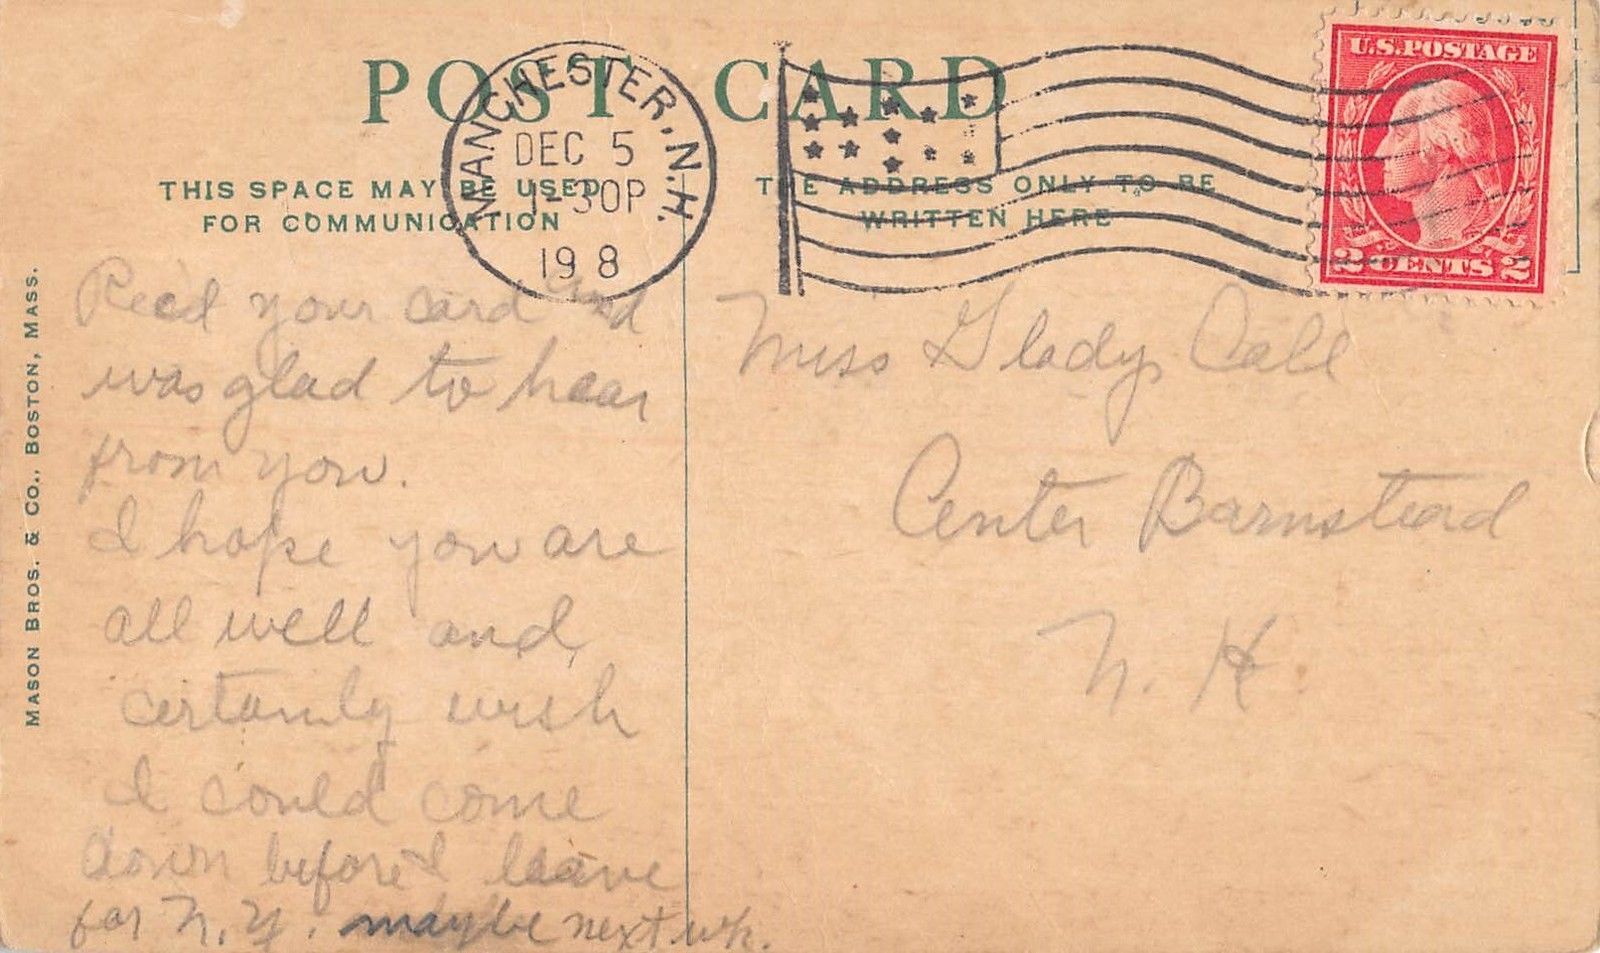 POST CARD
THIS SPACE MAY BE USED
FOR COMMUNICATION
THE ADDRESS ONLY TO BE
WRITTEN HERE
MANCHESTER, N.H.
DEC 5
1-30P
19 8
U.S. POSTAGE
2 CENTS 2
MASON BROS. & CO., BOSTON, MASS.
Recd your card and
was glad to hear
from you.
I hope you are
all well and
certainly wish
I could come
down before I leave
for N.Y. maybe next wk.
Miss Gladys Call
Center Barnstead
N. H.